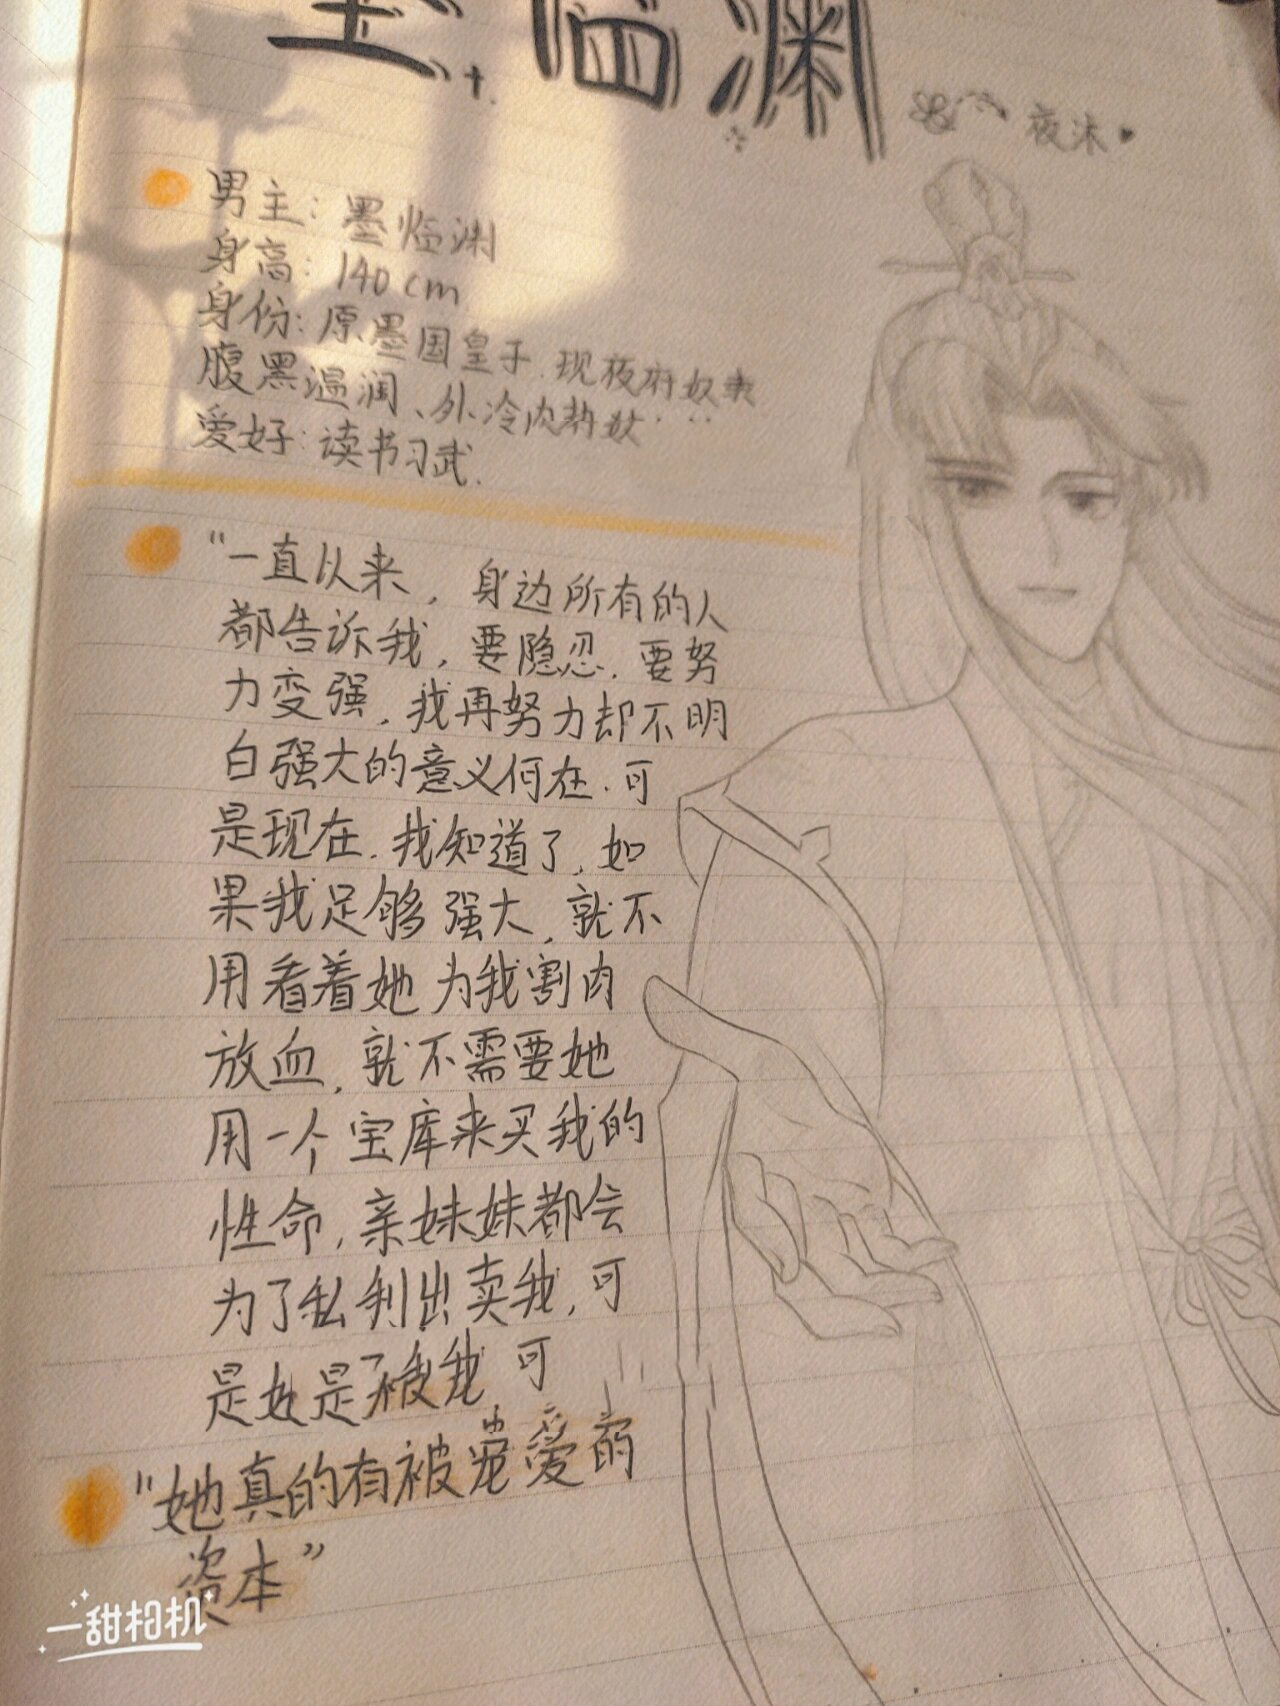 墨临渊
夜沫
男主：墨临渊
身高：140cm
身份：原墨国皇子.现夜府奴隶
腹黑温润、外冷内热奴…
爱好：读书习武.
“一直从来，身边所有的人
都告诉我，要隐忍.要努
力变强，我再努力却不明
白强大的意义何在.可
是现在.我知道了，如
果我足够强大，就不
用看着她为我割肉
放血，就不需要她
用一个宝库来买我的
性命，亲妹妹都会
为了私利出卖我，可
是她是 我 可
“她真的有被宠爱的
资本”
一甜相机